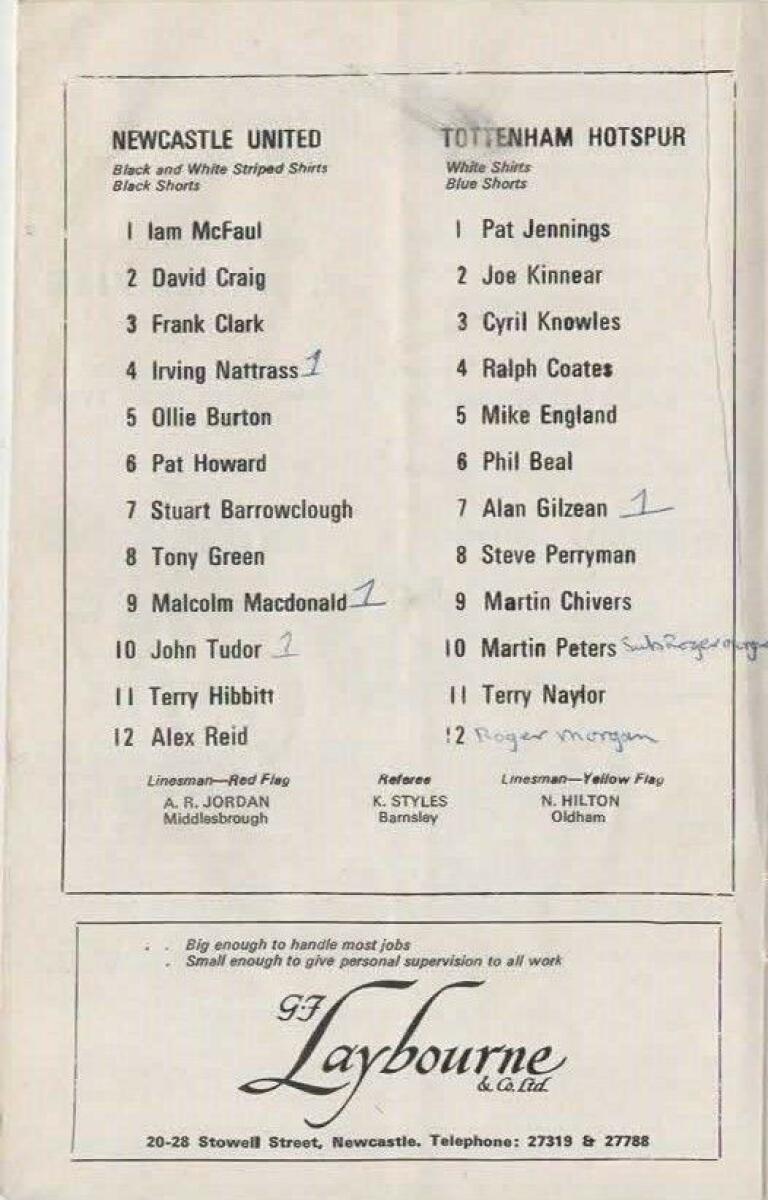 NEWCASTLE UNITED
Black and White Striped Shirts
Black Shorts
1 Iam McFaul
2 David Craig
3 Frank Clark
4 Irving Nattrass 1
5 Ollie Burton
6 Pat Howard
7 Stuart Barrowclough
8 Tony Green
9 Malcolm Macdonald 1
10 John Tudor 1
11 Terry Hibbitt
12 Alex Reid
TOTTENHAM HOTSPUR
White Shirts
Blue Shorts
1 Pat Jennings
2 Joe Kinnear
3 Cyril Knowles
4 Ralph Coates
5 Mike England
6 Phil Beal
7 Alan Gilzean 1
8 Steve Perryman
9 Martin Chivers
10 Martin Peters Sub Roger Morgan
11 Terry Naylor
12 Roger Morgan
Linesman—Red Flag
A. R. JORDAN
Middlesbrough
Referee
K. STYLES
Barnsley
Linesman—Yellow Flag
N. HILTON
Oldham
. . Big enough to handle most jobs
. Small enough to give personal supervision to all work
G.F
Laybourne
& Co. Ltd.
20-28 Stowell Street, Newcastle. Telephone: 27319 & 27788